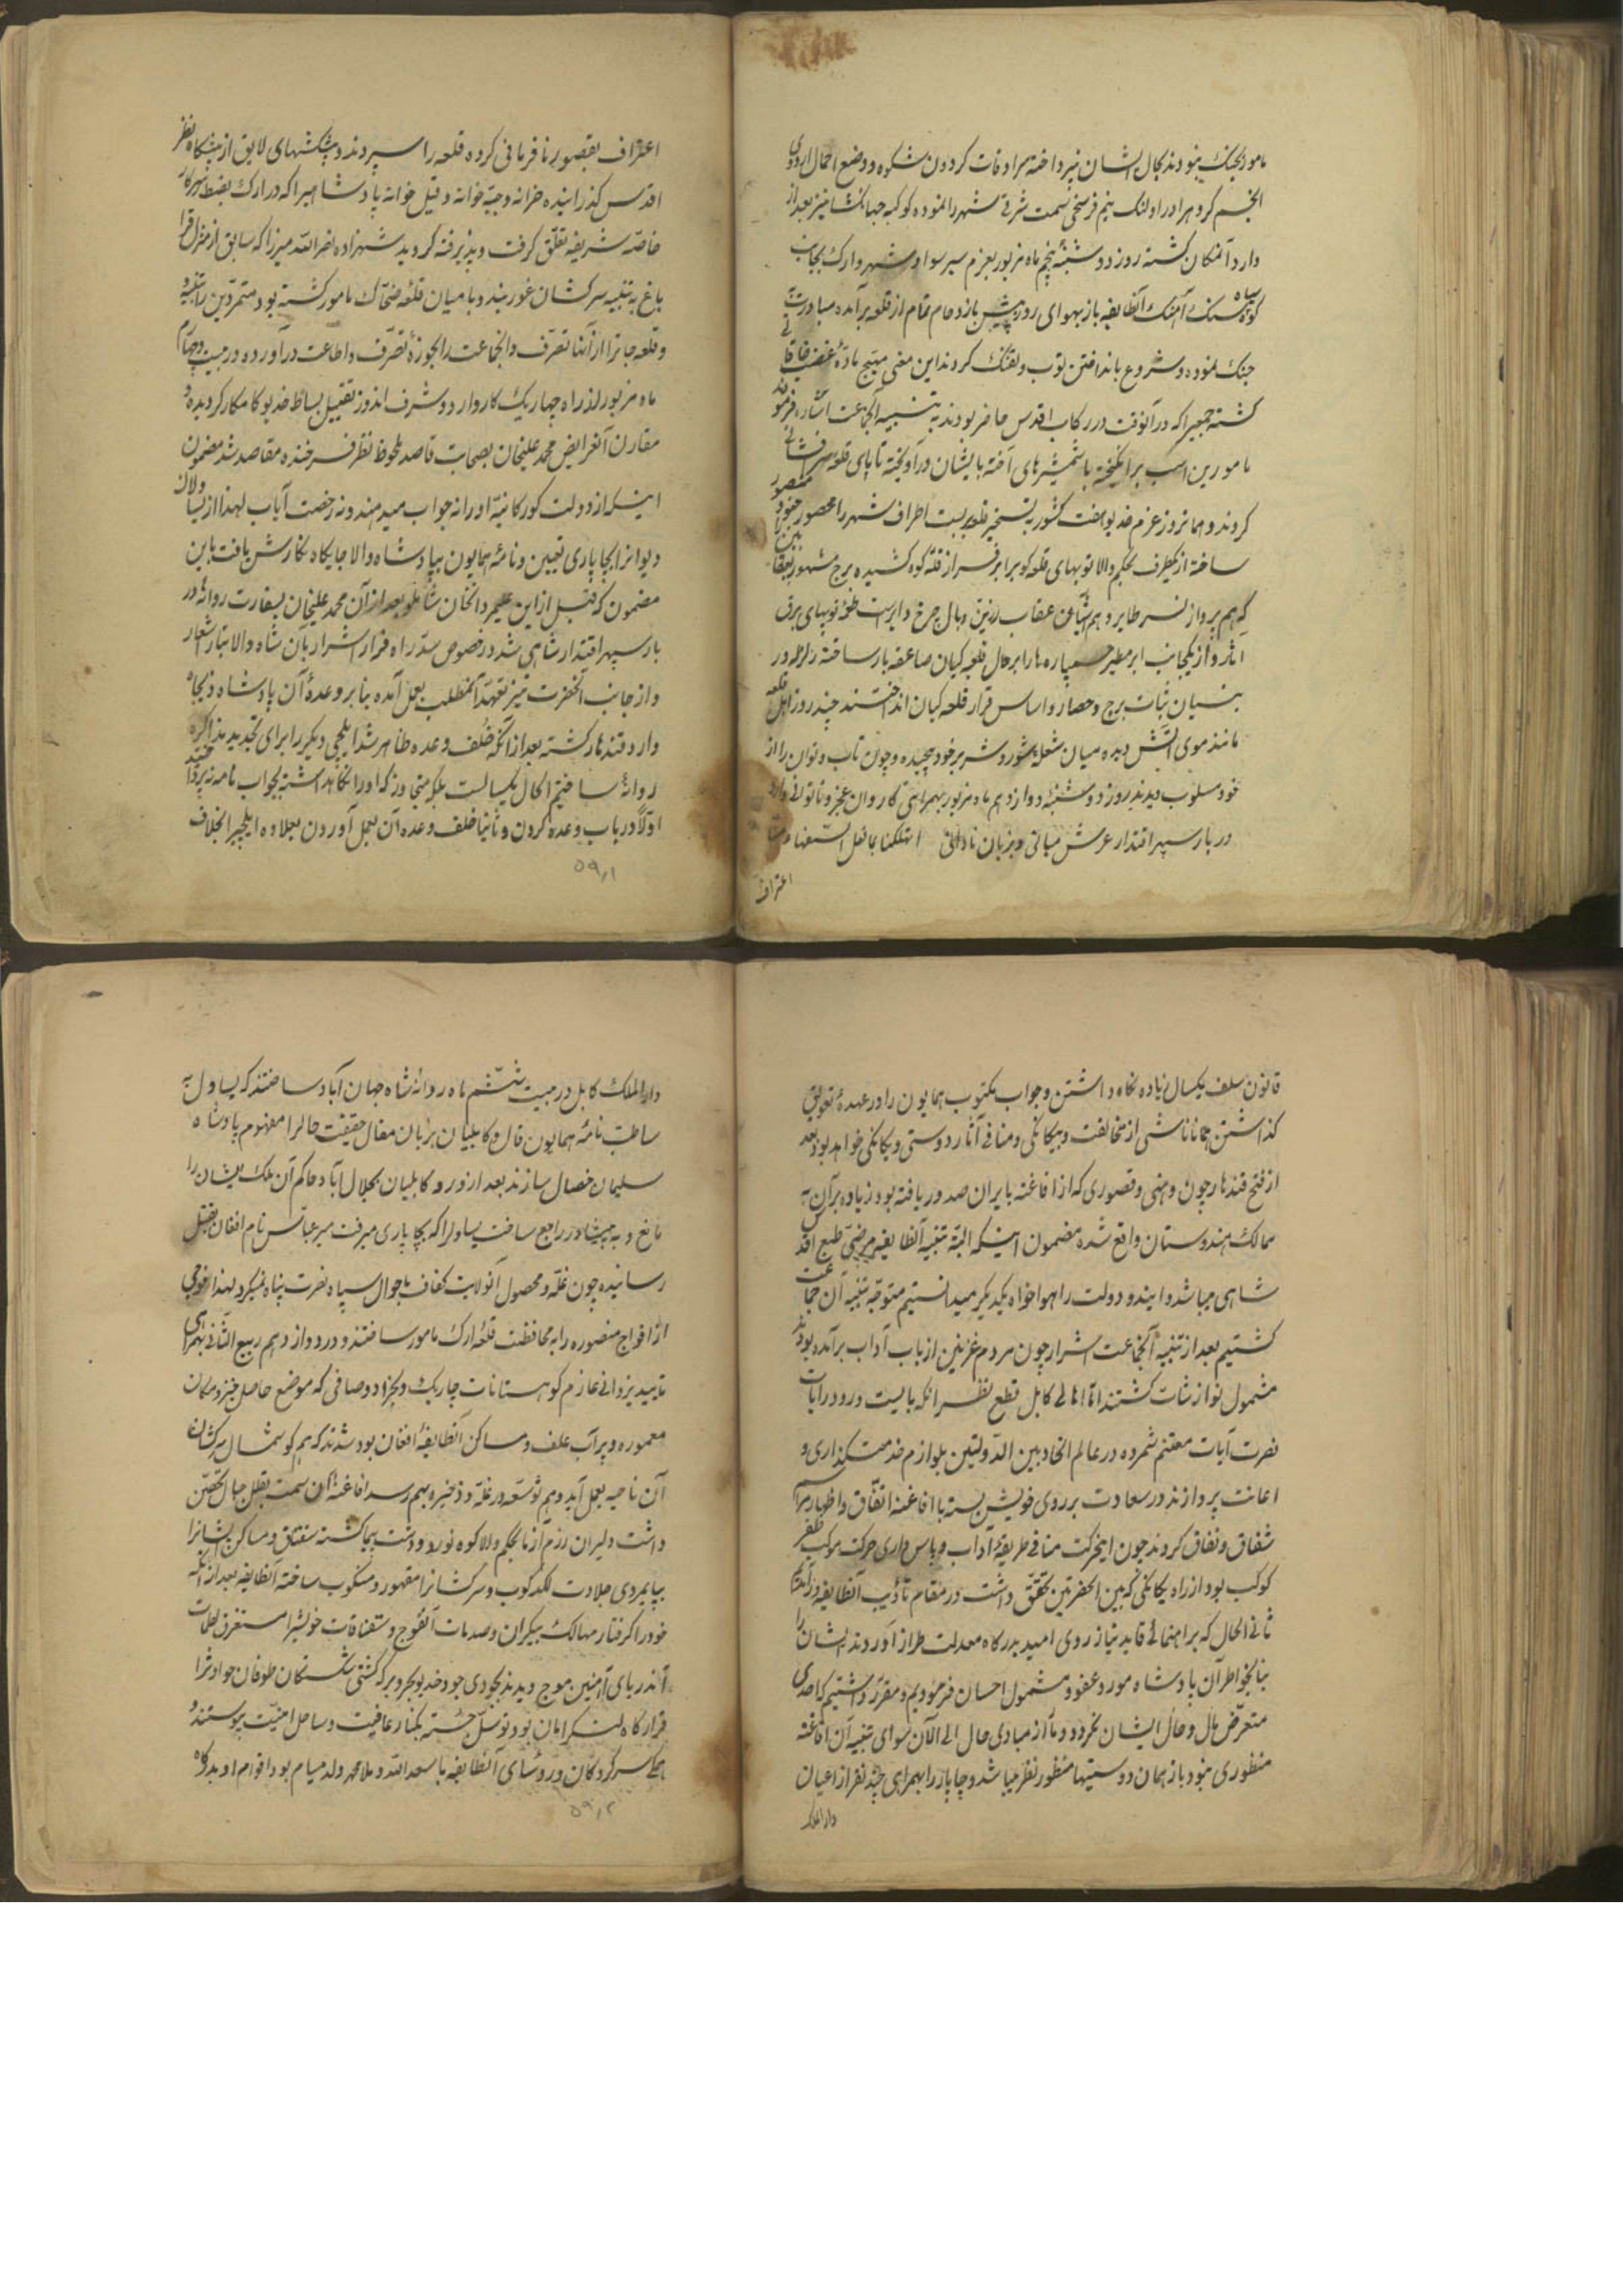 مامور بجنک نبودند بحال ایشان نپرداخته سرادقات کردون شکوه و وضع احمال اردوی
انجم کروه را در اولنک نیم فرسخی سمت شرقی شهر را نموده کوکبه جهانکشا نیز بعد از
وارد آنمکان کشته روز دوشنبه پنجم ماه مزبور بعزم سیر سواد شهر و ارک بجانب
کوه سیاه سنک آهنک آنطایفه باز بهوای روز پیش بازدحام تمام از قلعه برآمده مبادرت به
جنک نموده و شروع بانداختن توب و تفنک کردند این معنی مهیج ماده غضب خاقانی
کشته جمعیرا که در آنوقت در رکاب اقدس حاضر بودند به تنبیه آنجماعت اشاره فرمودند
مامورین اسب برانکیخته با شمشیرهای آخته بایشان درآویخته تا پای قلعه سرفشانی
کردند و همانروز عزم خدیو هفت کشور به تسخیر قلعه پیوست اطراف شهر را محصور جنود منصور
ساخته از یکطرف بحکم والا توبهای قلعه کوب را بر فراز قله کوه کشیده برج مشهور بعقابین
که هم پرواز نسر طایر و هم آشیان عقاب زرین بال چرخ دایر است توپهای برق
اثر و از یکجانب ابر مطیر خمپاره ها را بر حال قلعه کیان صاعقه بار ساخته زلزله در
بنیان ثبات برج و حصار و اساس قرار قلعه کیان انداختند چند روز اهل قلعه
مانند موی آتش دیده میان شعله شور و شر بر خود پیچیده و چون تاب و توان را از
خود مسلوب دیدند روز دوشنبه دوازدهم ماه مزبور بهمراهی کاروان عجز و ناتوانی وارد
دربار سپهر اقتدار عرش مبانی و بزبان نادانی اتهلکنا بما فعل السفهاء منا
اعتراف
اعتراف بقصور نافرمانی کرده قلعه را سپردند و پیشکشهای لایق از پیشکاه نظر
اقدس کذرانیده خزانه و جبه خانه و فیل خانه پادشاهیرا که در ارک بضبط سرکار
خاصه شریفه تعلق کرفت و پذیرفته کردید شهزاده نصرالله میرزا که سابق از منزل قرا
باغ به تنبیه سرکشان غوربند و بامیان قلعه ضحاک مامور کشته بود متمردین را تنبیه
و قلعه جات را از آنها تصرف و آنجماعت را بحوزه تصرف و اطاعت درآورده در بیست و چهارم
ماه مزبور از راه چهاریک کار وارد و شرف اندوز تقبیل بساط خدیو کامکار کردیده و
مقارن آن عرایض محمد علیخان بصحابت قاصد ملحوظ نظر فرخنده مقاصد شد مضمون
اینکه از دولت کورکانیه او را نه جواب میدهند و نه رخصت ایاب لهذا از
دیوانرا بچاپاری تعیین و نامه همایون بپادشاه والا جایکاه نکارش یافت باین
مضمون که قبل ازین علیمردانخان شاملو بعد از آن محمد علیخان بسفارت روانه در
بار سپهر اقتدار شاهی شد در خصوص سد راه فرار اشرار بآن شاه والا تبار اشعار
و از جانب آنحضرت نیز تعهد آنمطلب بعمل آمده بنا بر وعده آن پادشاه ذیجاه
وارد قندهار کشته بعد از آنکه خلف وعده ظاهر شد ایلچی دیکر را برای تجدید مذاکره
روانه ساختیم الحال یکسالست بلکه متجاوز که او را نکاهداشته بجواب نامه نپرداختند
اولا در باب وعده کردن و ثانیا خلف وعده آن بعمل آوردن بعلاوه ایلچیرا بخلاف
۵۹٫۱
قانون سلف یکسال زیاده نکاه داشتن و جواب مکتوب همایون را در عهده تعویق
کذاشتن همانا ناشی از مخالفت و بیکانکی و منافی آثار دوستی و یکانکی خواهد بود بعد
از فتح قندهار چون وهنی و قصوری که از افاغنه بایران صدور یافته بود زیاده بر آن به
ممالک هندوستان واقع شده مضمون اینکه البته تنبیه آنطایفه مرضی طبع اقدس
شاهی میباشد و ایندو دولت را هواخواه یکدیکر میدانستیم متوجه تنبیه آن جماعت
کشتیم بعد از تنبیه آنجماعت اشرار چون مردم غزنین از باب آداب برآمده بودند
مشمول نوازشات کشتند اما اهالی کابل قطع نظر از آنکه بایست ورود رایات
نصرت آیات مغتنم شمرده در عالم اتحاد بین الدولتین بلوازم خدمتکذاری و
اعانت پردازند در سعادت بر روی خویش بسته با افاغنه اتفاق و اظهار مراسم
شقاق و نفاق کردند چون اینحرکت منافی طریقه آداب و پاس داری حرکت موکب ظفر
کوکب بود از راه یکانکی که بین الحضرتین تحقق داشت در مقام تأدیب آنطایفه درآمدیم
ثانی الحال که براهنمائی قاید نیاز روی امید بدرکاه معدلت طراز آوردند ایشان را
بنا بخواطر آن پادشاه مورد عفو و مشمول احسان فرمودیم و مقرر داشتیم که احدی
متعرض مال و حال ایشان نکردد و ما از مبادی حال الی الآن سوای تنبیه آن افاغنه
منظوری نبود باز همان دوستیها منظور نظر میباشد و چاپار را بهمراهی چند نفر از اعیان
دارالملک
دارالملک کابل در بیست ششم ماه روانه شاه جهان آباد ساختند که یساول به
ساطت نامه همایون فال و کابلیان بزبان مقال حقیقت حالرا مفهوم پادشاه
سلیمان خصال سازند بعد از ورود کابلیان بجلال آباد حاکم آن ملک ایشان را
مانع و به پیشاور راجع ساخت یساولرا که بچاپاری میرفت میر عباس نام افغان بقتل
رسانیده چون غله و محصول آنولایت کفاف باحوال سپاه نصرت پناه نمیکرد لهذا فوجی
از افواج منصوره را به محافظت قلعه ارک مامور ساختند و در دوازدهم ربیع الثانی بهمراهی
تایید یزدانی عازم کوهستانات چاریک و نجراد و صافی که موضع حاصل خیز و مکان
معموره و پر آب علف و مساکن آنطایفه افغان بود شدند که هم کوشمال سرکشان
آن ناحیه بعمل آید و هم توسعه در غله و ذخیره بهم رسد افاغنه آن سمت بقلل جبال تحصن
داشت دلیران رزم آزما بحکم والا کوه نورد و دشت پیما کشته سقناق و مساکن ایشانرا
بپایمردی جلادت لکدکوب و سرکشانرا مقهور و منکوب ساخته آنطایفه بعد از آنکه
خود را کرفتار مهالک بیکران و صدمات آنفوج و سقناقات خویش را مستغرق لطمات
آندریای آهنین موج دیدند بجودی جود خدیو بحر و بر که کشتی شکستکان طوفان حوادثرا
قرارکاه لنکر امان بود توسل جسته بکنار عافیت و ساحل امنیت پیوستند و
همکی سرکردکان و رؤسای آنطایفه با سعدالله و ملا محمد ولد میام بود اقوام او بدرکاه
۵۹٫۲